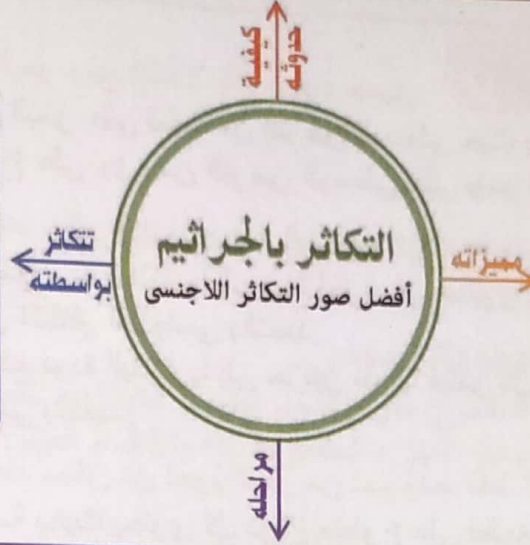 كيفية
حدوثه
التكاثر بالجراثيم
أفضل صور التكاثر اللاجنسى
مميزاته
تتكاثر
بواسطته
مراحله